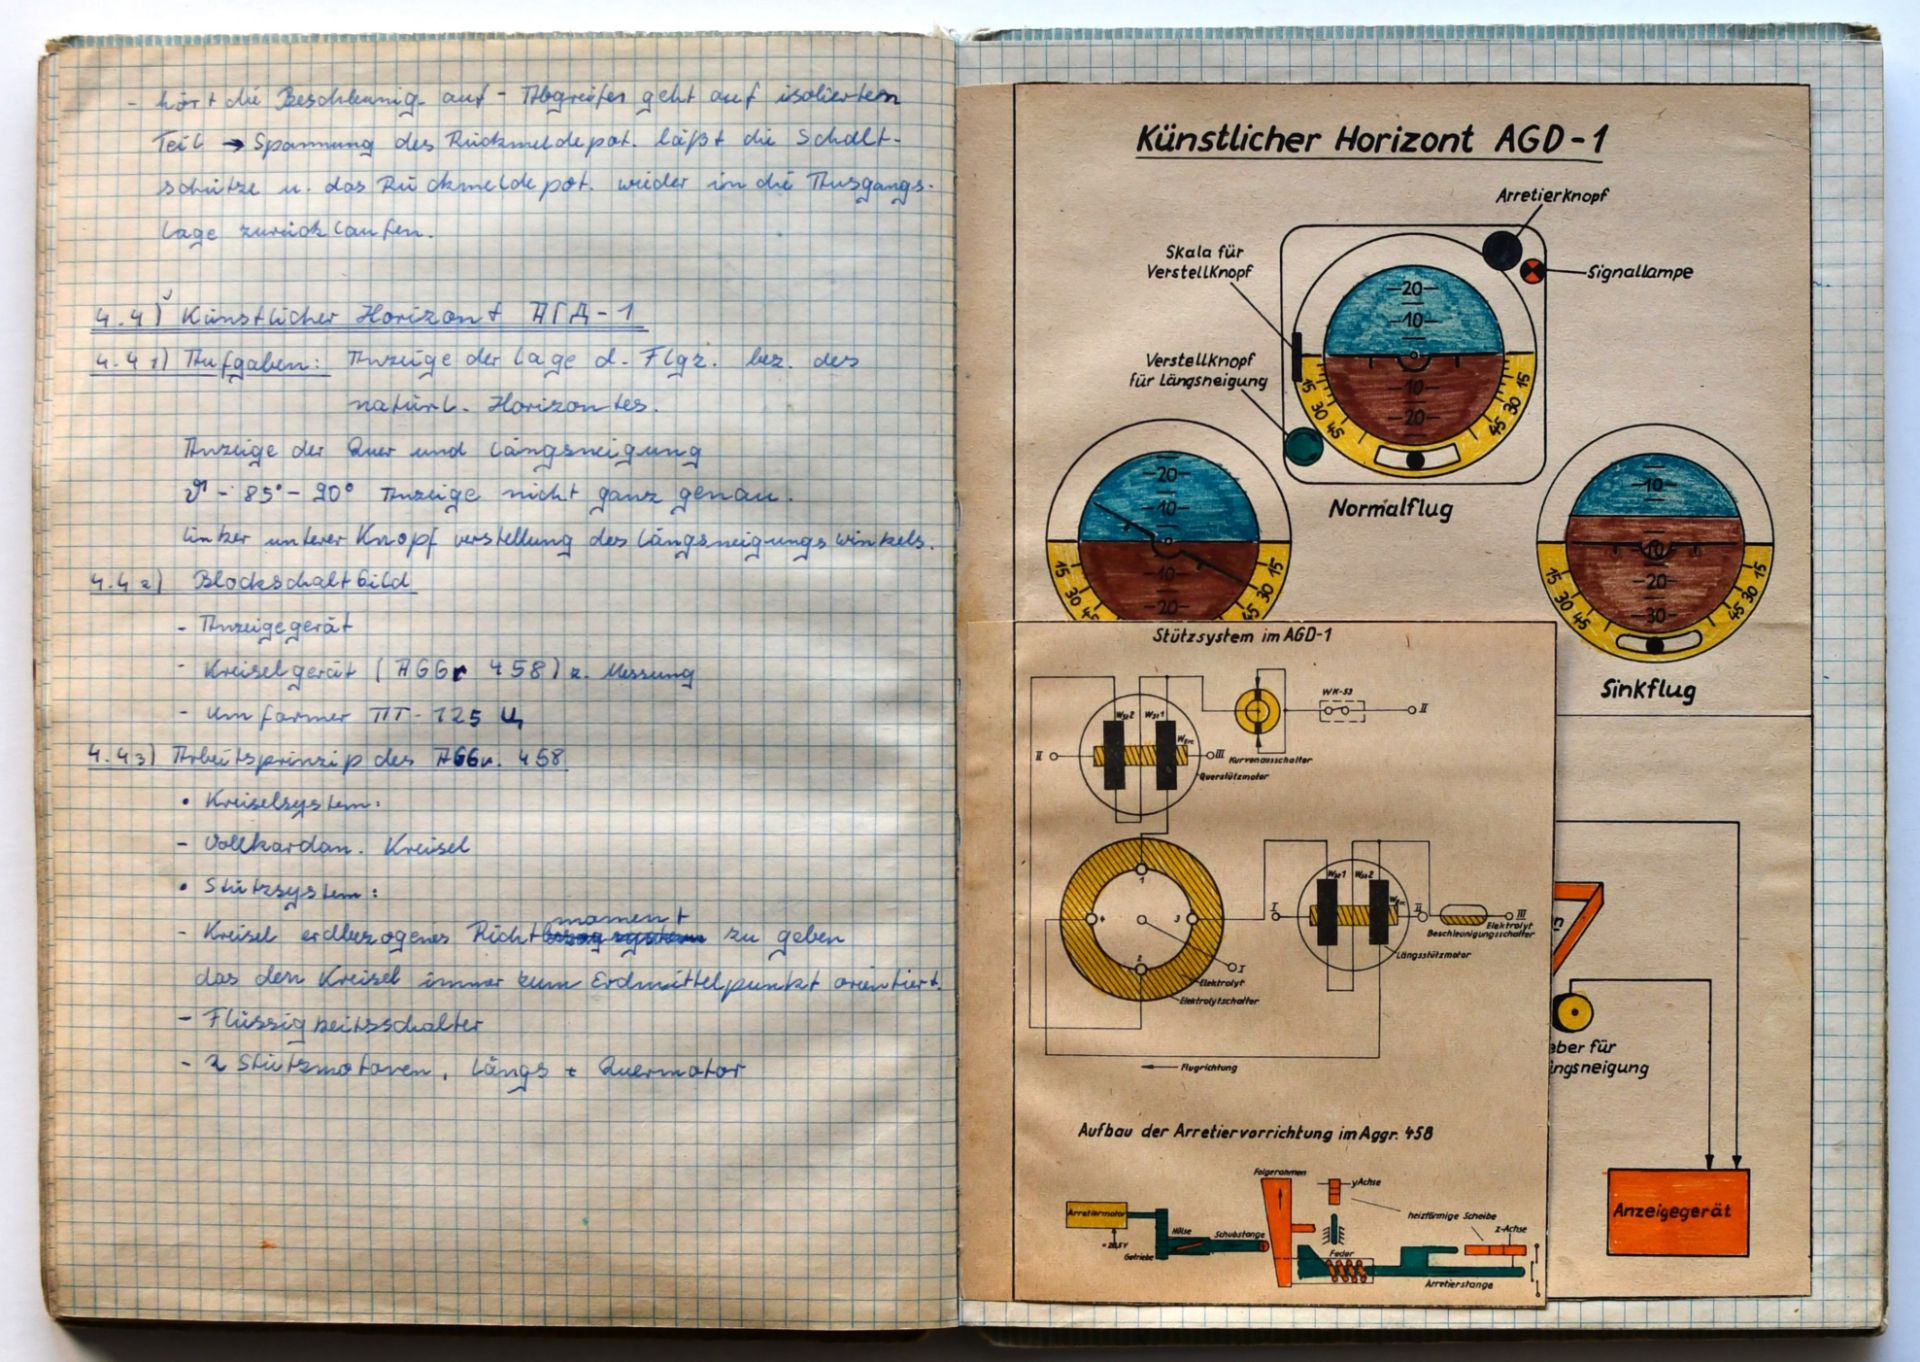 - hört die Beschleunig. auf - Abgreifer geht auf isoliertem
Teil → Spannung des Rückmeldepot. läßt die Schalt-
schütze u. das Rückmeldepot. wieder in die Ausgangs-
lage zurücklaufen.
4.4) Künstlicher Horizont АГД-1
4.4 1) Aufgaben: Anzeige der Lage d. Flgz. bez. des
natürl. Horizontes.
Anzeige der Quer und Längsneigung
ϑ - 85° - 90° Anzeige nicht ganz genau.
linker unterer Knopf verstellung des Längsneigungswinkels.
4.4 2) Blockschaltbild
- Anzeigegerät
- Kreiselgerät (AGGr 458) z. Messung
- Umformer ПТ-125 Ц
4.4 3) Arbeitsprinzip des AGGr. 458
• Kreiselsystem:
- Vollkardan. Kreisel
• Stützsystem:
- Kreisel erdbezogenes Richtmoment zu geben
das den Kreisel immer zum Erdmittelpunkt orientiert.
- Flüssigkeitsschalter
- 2 Stützmotoren, Längs + Quermotor
Künstlicher Horizont AGD-1
Arretierknopf
Skala für
Verstellknopf
Signallampe
Verstellknopf
für Längsneigung
20
10
10
20
15 30 45
45 30 15
Normalflug
20
10
10
20
15 30 45
45 30 15
10
10
20
30
15 30 45
45 30 15
Sinkflug
Stützsystem im AGD-1
WSt2 WSt1
WErr
WK-53
II
II
III
Kurvenausschalter
Querstützmotor
1
4
3
2
I
Elektrolyt
Elektrolytschalter
WSt1 WSt2
WErr
I
II
III
Elektrolyt
Beschleunigungsschalter
Längsstützmotor
Flugrichtung
en
eber für
ängsneigung
Anzeigegerät
Aufbau der Arretiervorrichtung im Aggr. 458
Folgerahmen
y Achse
Arretiermotor
herzförmige Scheibe
z-Achse
Hülse
Schubstange
Getriebe
Feder
Arretierstange